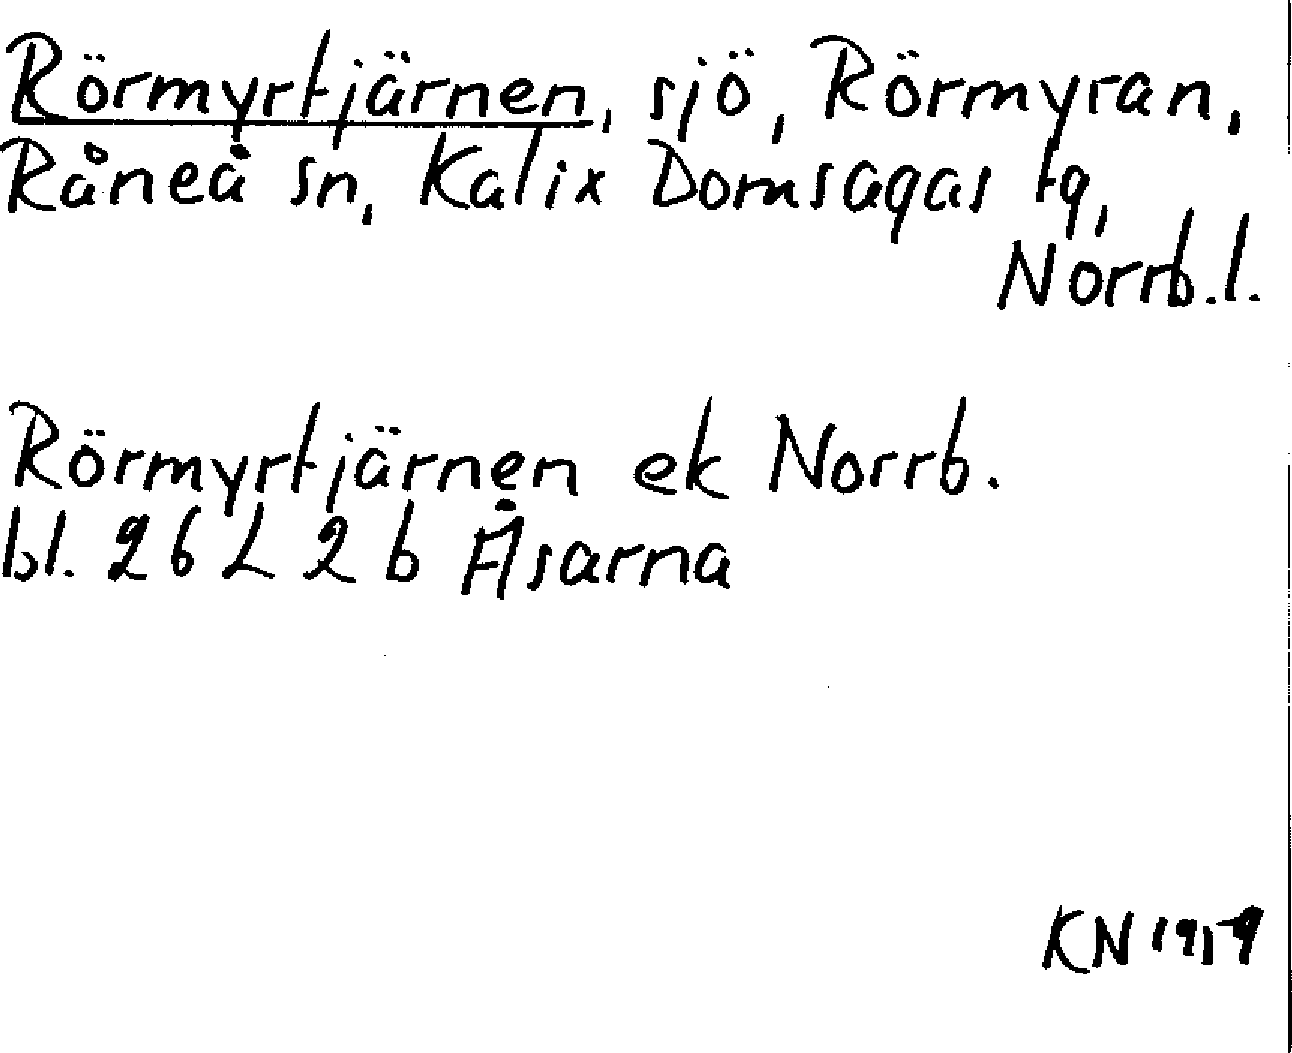 Rörmyrtjärnen, sjö, Rörmyran,
Råneå sn, Kalix Domsagas tg,
Norrb.l.
Rörmyrtjärnen ek Norrb.
bl. 26 L 2 b Åsarna
KN